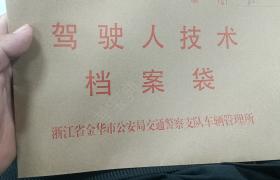 驾驶人技术
档案袋
浙江省金华市公安局交通警察支队车辆管理所